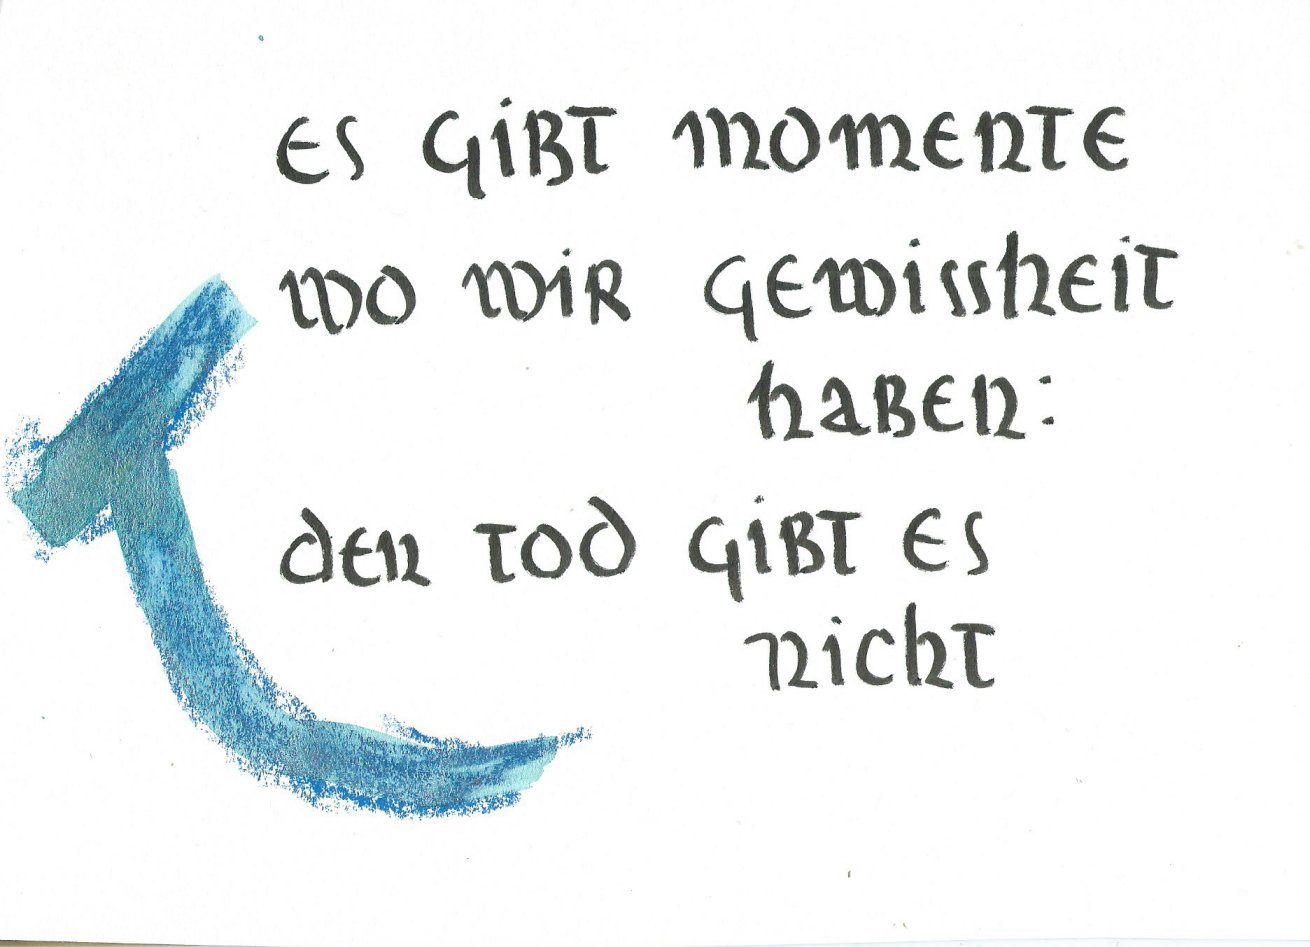 ES GIBT MOMENTE
WO WIR GEWISSHEIT
HABEN:
DEN TOD GIBT ES
NICHT